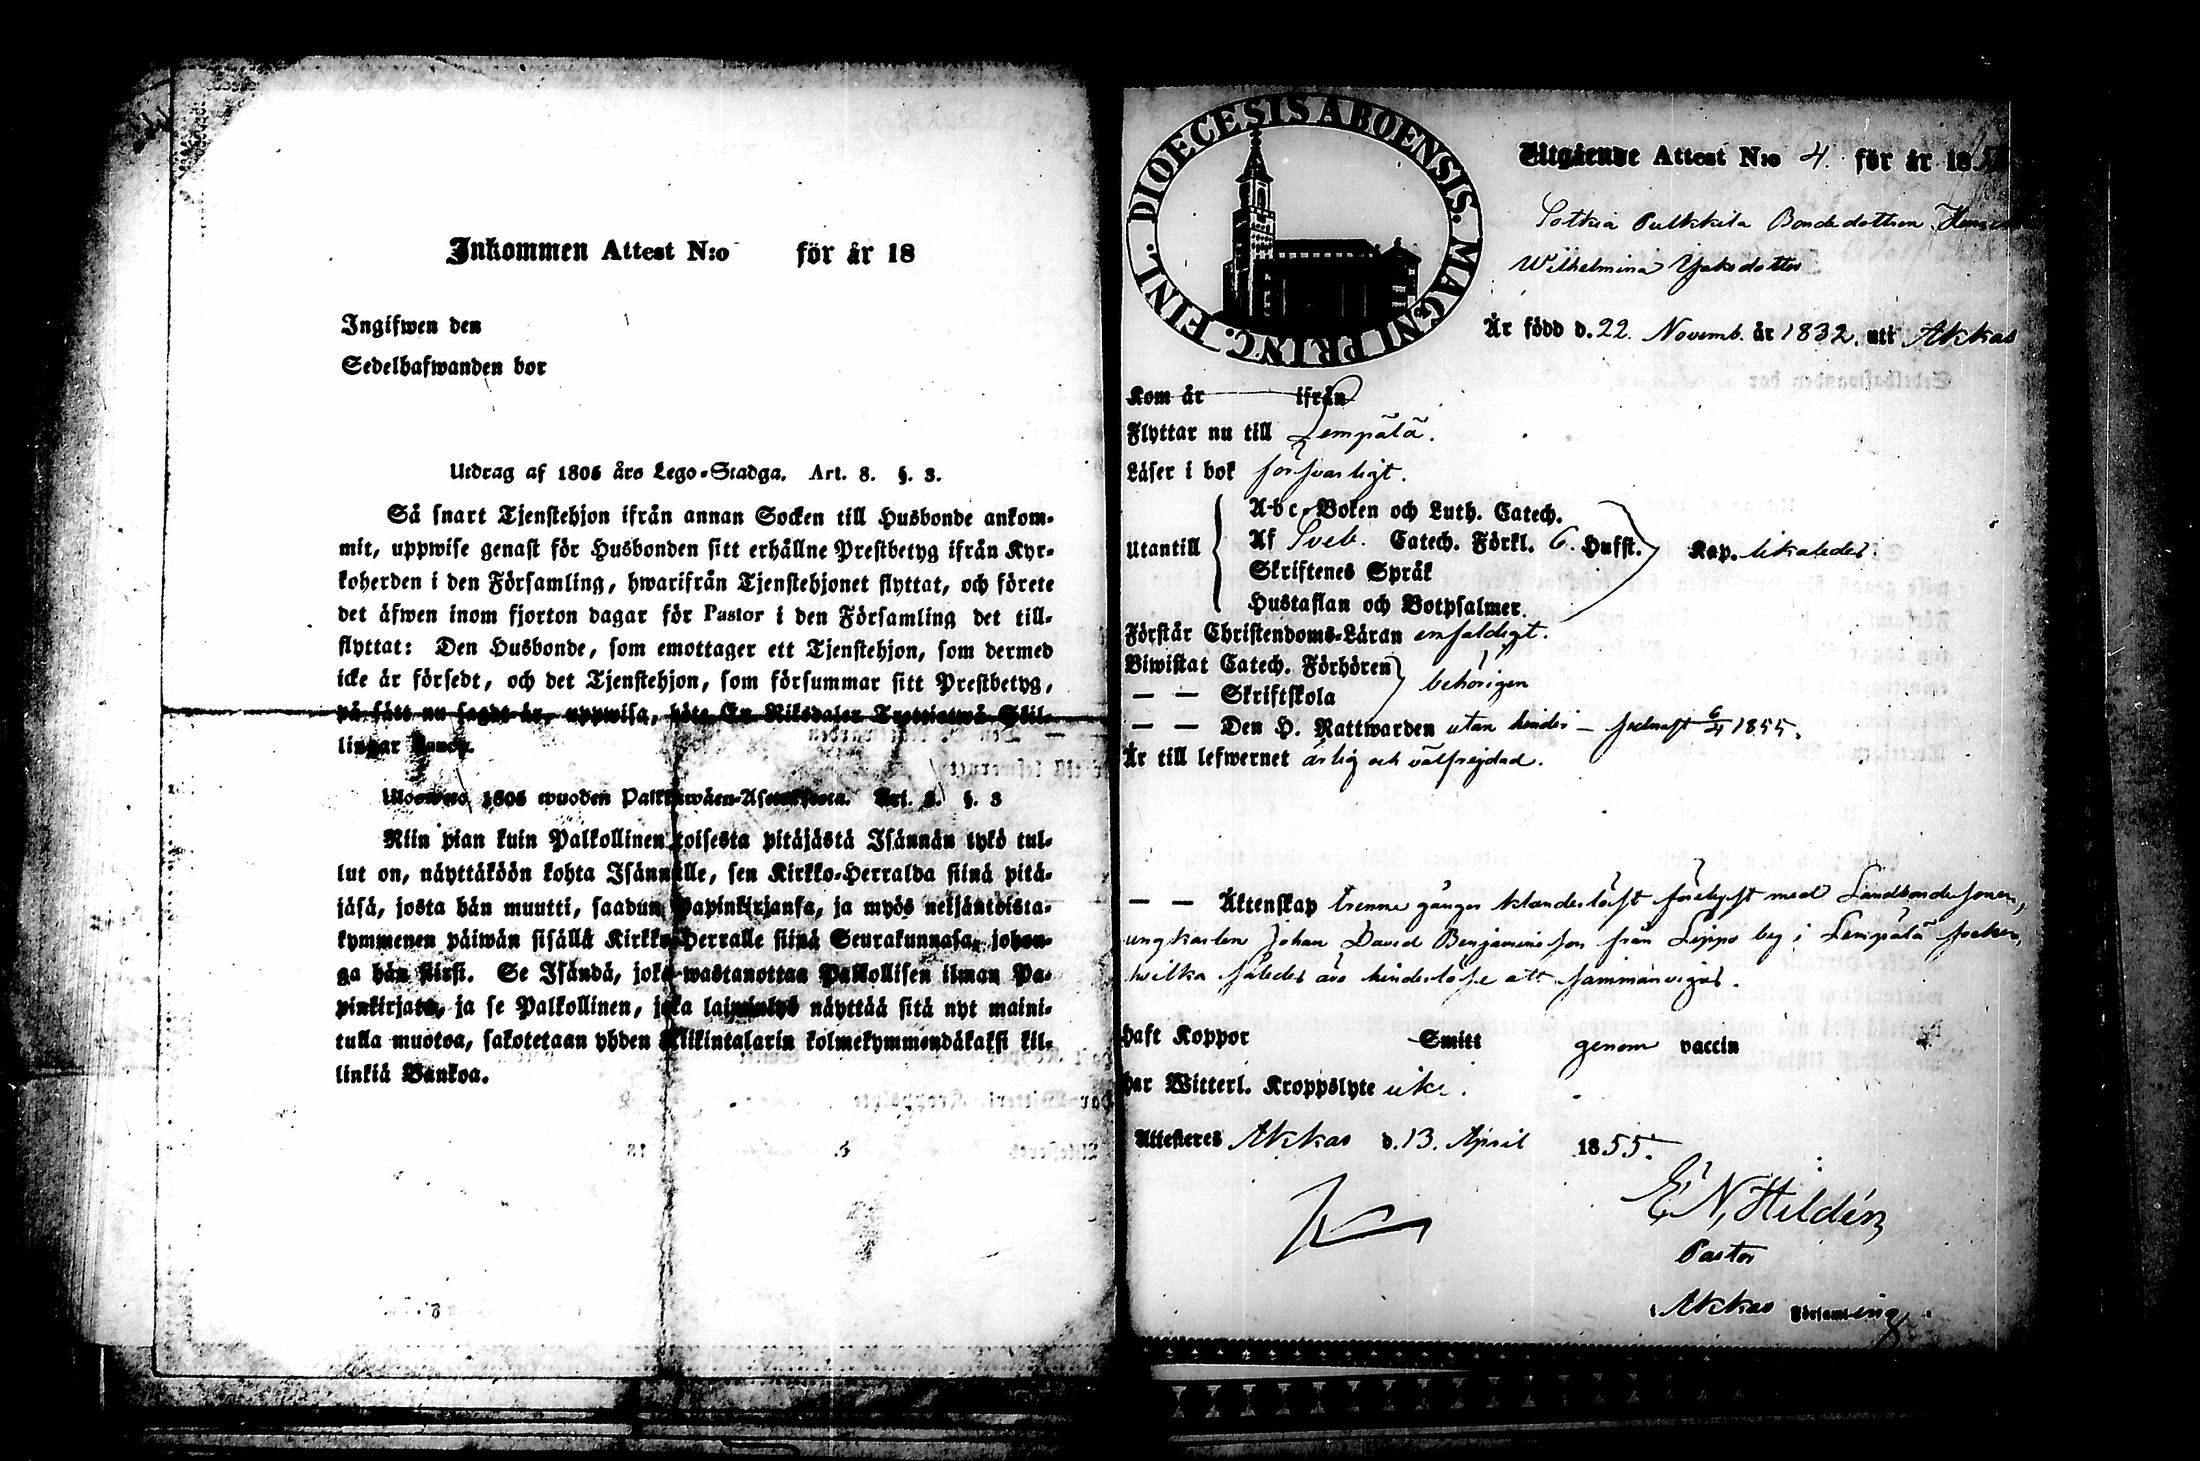 Inkommen Attest N:o för år 18
Ingifwen den
Sedelhafwanden bor
Utdrag af 1805 års Lego-Stadga. Art. 8. §. 3.
Så snart Tjenstehjon ifrån annan Socken till Husbonde ankom-
mit, uppwise genast för Husbonden sitt erhållne Prestbetyg ifrån Kyr-
koherden i den Församling, hwarifrån Tjenstehjonet flyttat, och förete
det äfwen inom fjorton dagar för Pastor i den Församling det till-
flyttat: Den Husbonde, som emottager ett Tjenstehjon, som dermed
icke är försedt, och det Tjenstehjon, som försummar sitt Prestbetyg,
på sätt nu sagdt är, uppwisa, böte En Riksdaler Trettiotwå Skil-
lingar Banco.
1805 wuoden Art. 8. §. 3
Niin pian kuin Palkollinen toisesta pitäjästä Isännän tykö tul-
lut on, näyttäköön kohta Isännälle, sen Kirkko-Herralda siinä pitä-
jäsä, josta hän muutti, saadun Papinkirjansa, ja myös neljäntoista-
kymmenen päiwän sisällä Kirkko-Herralle siinä Seurakunnasa, johon-
ga hän siirsi. Se Isändä, joka wastanottaa Palkollisen ilman Pa-
pinkirjata, ja se Palkollinen, joka laiminlyö näyttää sitä nyt maini-
tulla muotoa, sakotetaan yhden Riikintalarin kolmekymmendäkaksi kil-
linkiä Bankoa.
DIOECESIS ABOENSIS. MAGNI PRINC. FINL.
Utgående Attest N:o 4. för år 18
Sotkia Pulkkila Bondedottren
Wilhelmina Jaksdotter
Är född d. 22. Novemb. år 1832. uti Akkas
Kom år ifrån
Flyttar nu till Lempälä.
Läser i bok försvarligt.
Utantill
A-b-c-Boken och Luth. Catech.
Af Sveb. Catech. Förkl. 6. Hufst. Kap. likaledes.
Skriftenes Språk
Hustaflan och Botpsalmer.
Förstår Christendoms-Läran enfaldigt.
Biwistat Catech. Förhören
— — Skriftskola behörigen
— — Den H. Nattwarden utan hinder – sednast 6/4 1855.
Är till lefwernet ärlig och välfrejdad.
— — Äktenskap trenne gånger klanderlöst förelyst med Landbondesonen,
ungkarlen Johan David Benjaminsson från Lippo by i Lempälä socken,
hvilka således äro hinderlöse att sammanvigas.
haft Koppor Smitt genom vaccin
har Witterl. Kroppslyte icke.
Attesteres Akkas d. 13. April 1855.
E. N. Hildén
Pastor
i Akkas Församling